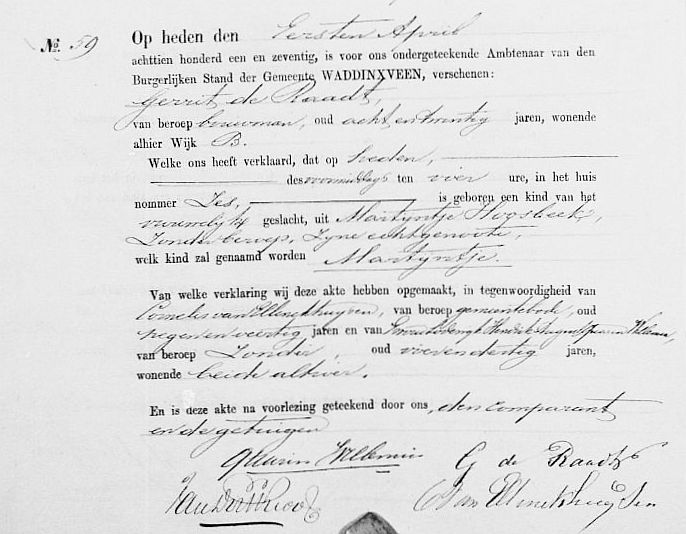 No. 59
Op heden den Eersten April
achttien honderd een en zeventig, is voor ons ondergeteekende Ambtenaar van den
Burgerlijken Stand der Gemeente WADDINXVEEN, verschenen:
Gerrit de Raadt,
van beroep bouwman, oud acht en twintig jaren, wonende
alhier Wijk B.
Welke ons heeft verklaard, dat op heden,
des voormiddags ten vier ure, in het huis
nommer Zes, is geboren een kind van het
vrouwelijk geslacht, uit Martijntje Hoogsbeek,
Zonder beroep, Zijne echtgenoote,
welk kind zal genaamd worden Martijntje.
Van welke verklaring wij deze akte hebben opgemaakt, in tegenwoordigheid van
Cornelis van Ellinckhuijsen, van beroep gemeentebode, oud
negen en veertig jaren en van Hendrik Willemier,
van beroep Zonder, oud vier en dertig jaren,
wonende beide alhier.
En is deze akte na voorlezing geteekend door ons, den comparant
en de getuigen
Willemier G de Raadt
van Ellinckhuijsen